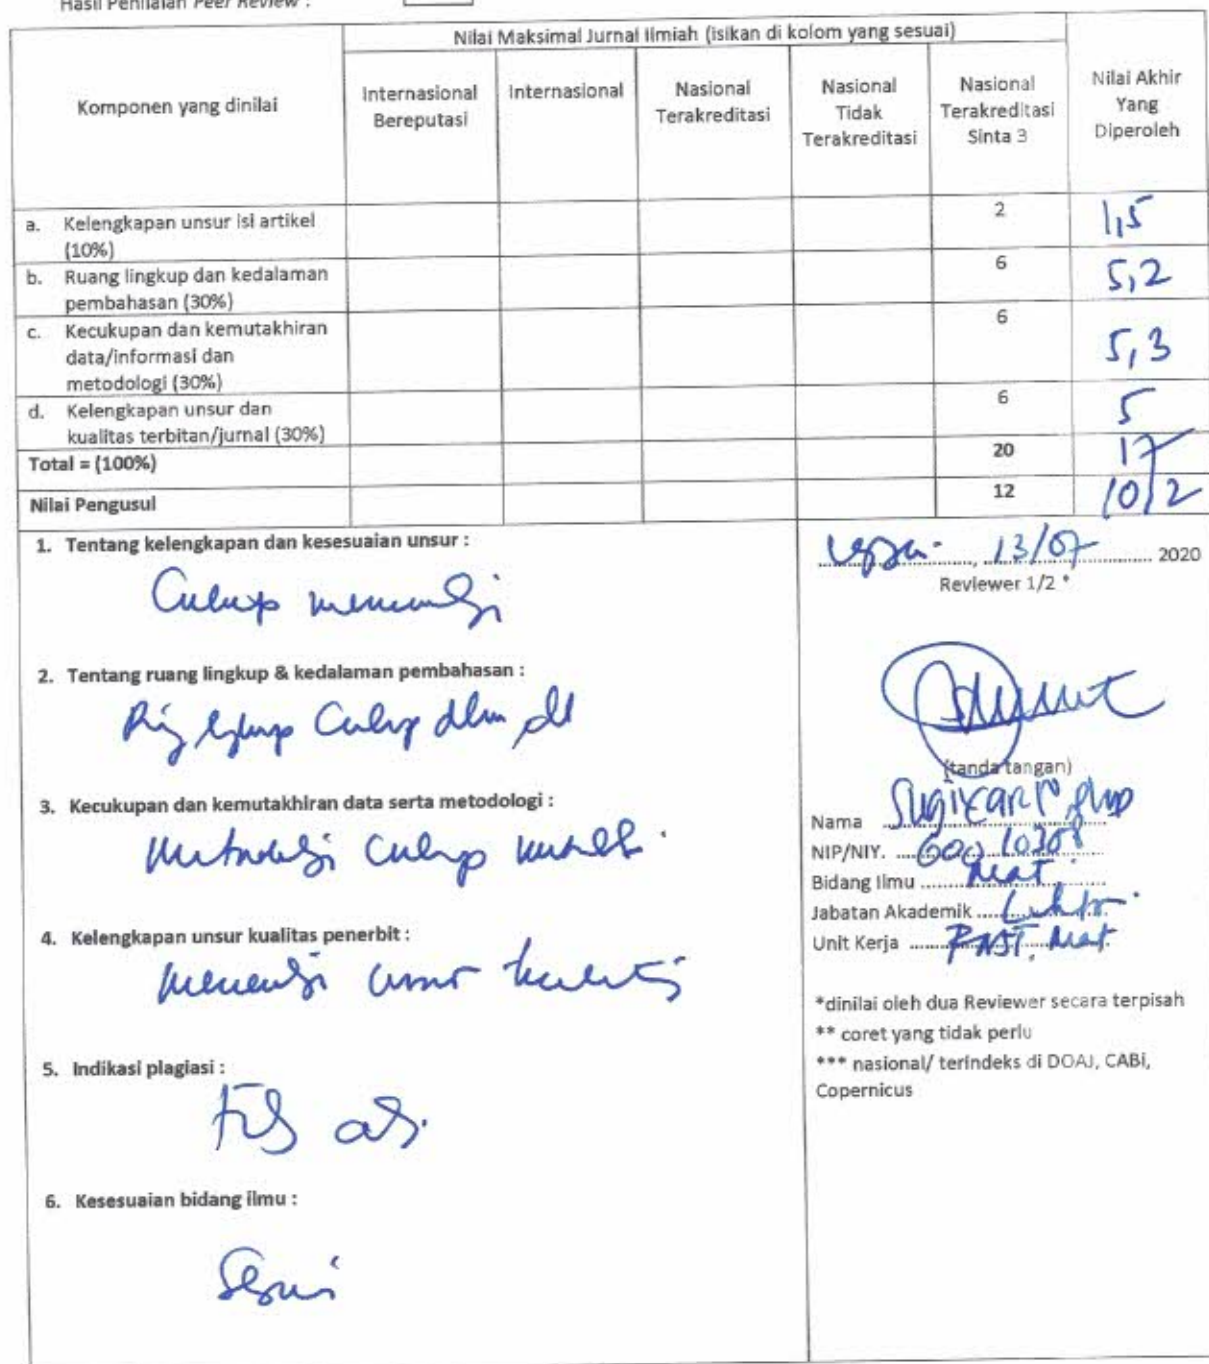 Hasil Penilaian Peer Review :
Nilai Maksimal Jurnal Ilmiah (isikan di kolom yang sesuai)
Komponen yang dinilai
Internasional Bereputasi
Internasional
Nasional Terakreditasi
Nasional Tidak Terakreditasi
Nasional Terakreditasi Sinta 3
Nilai Akhir Yang Diperoleh
a. Kelengkapan unsur isi artikel (10%)
2
1,5
b. Ruang lingkup dan kedalaman pembahasan (30%)
6
5,2
c. Kecukupan dan kemutakhiran data/informasi dan metodologi (30%)
6
5,3
d. Kelengkapan unsur dan kualitas terbitan/jurnal (30%)
6
5
Total = (100%)
20
17
Nilai Pengusul
12
10,2
1. Tentang kelengkapan dan kesesuaian unsur :
Cukup memenuhi
2. Tentang ruang lingkup & kedalaman pembahasan :
Cukup
3. Kecukupan dan kemutakhiran data serta metodologi :
Metodologi cukup
4. Kelengkapan unsur kualitas penerbit :
memenuhi unsur kualitas
5. Indikasi plagiasi :
6. Kesesuaian bidang ilmu :
Sesuai
13/07 2020
Reviewer 1/2 *
(tanda tangan)
Nama
NIP/NIY.
Bidang Ilmu Mat
Jabatan Akademik Lektor
Unit Kerja Mat
*dinilai oleh dua Reviewer secara terpisah
** coret yang tidak perlu
*** nasional/ terindeks di DOAJ, CABI,
Copernicus